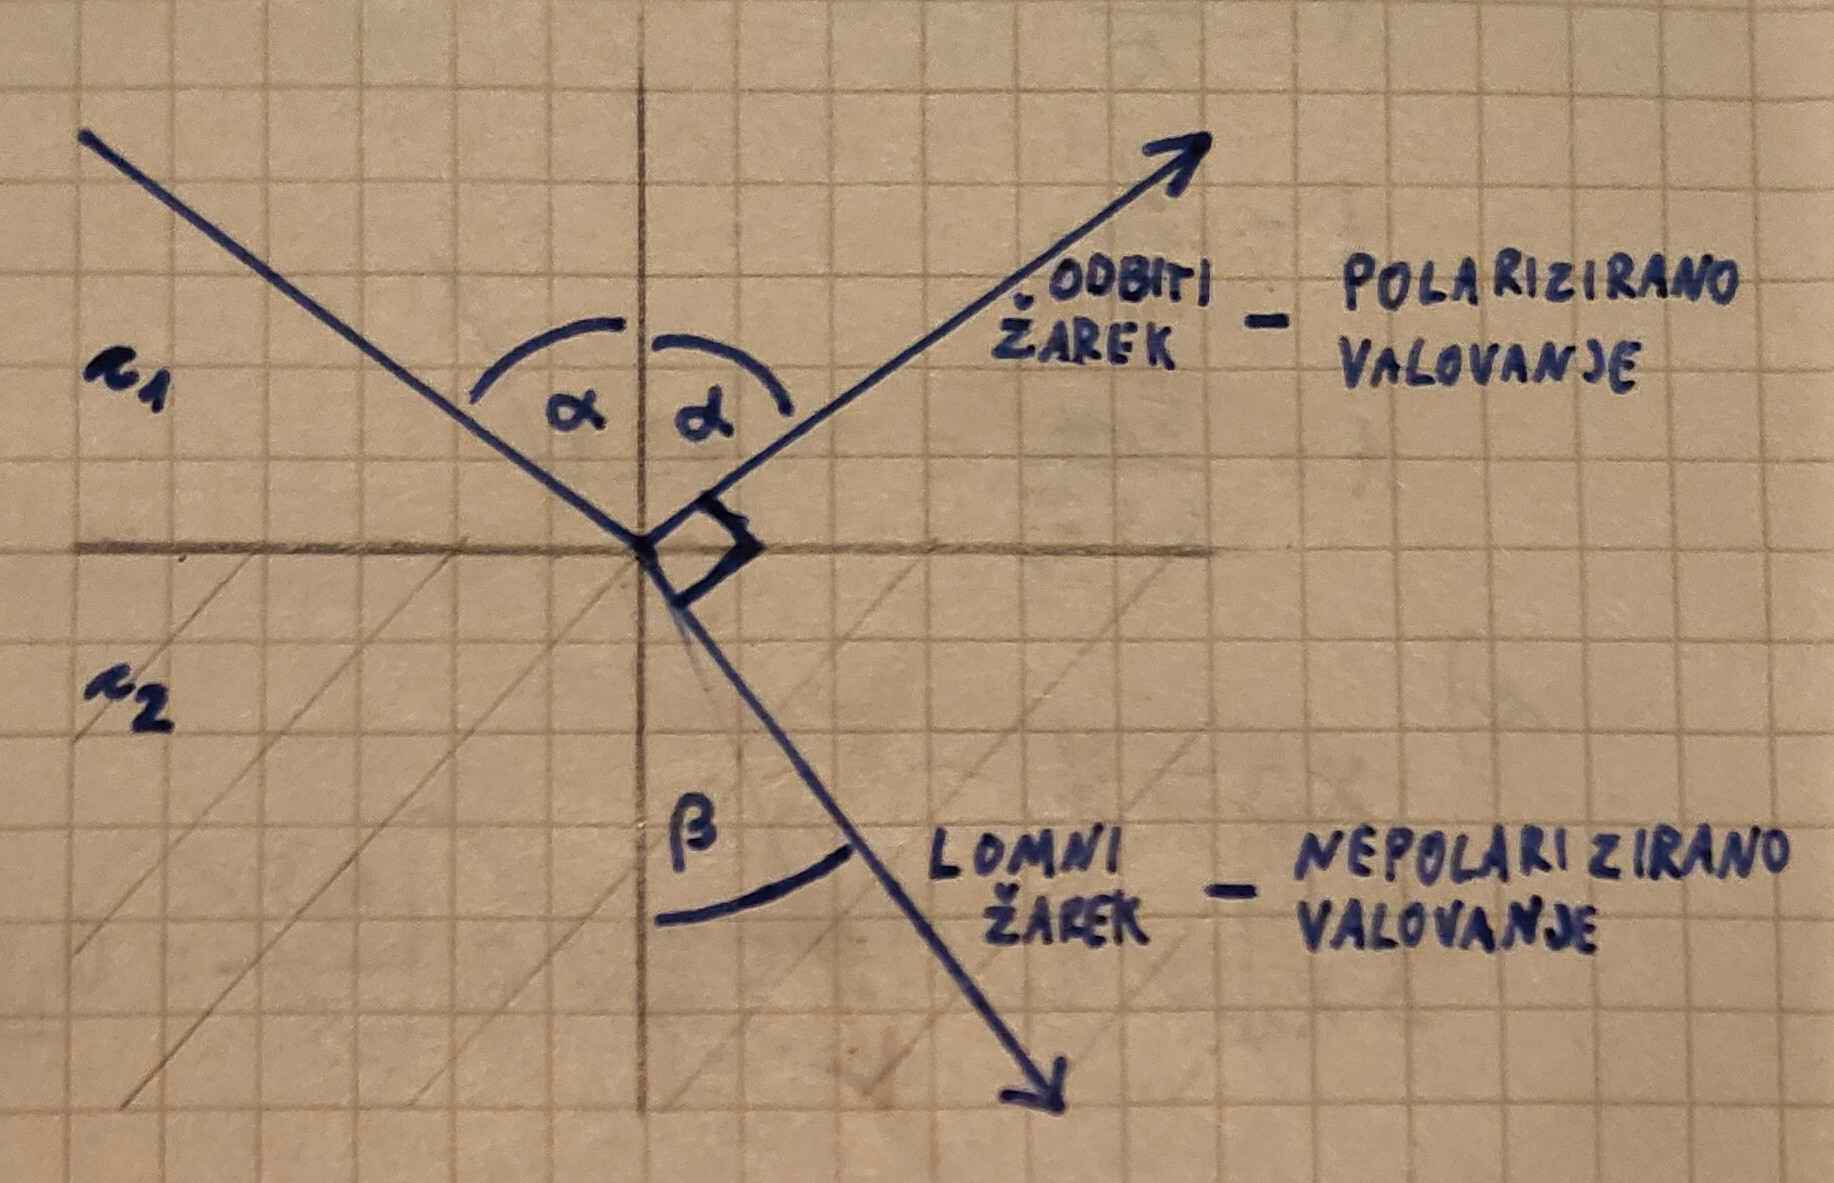 ODBITI
ŽAREK - POLARIZIRANO
VALOVANJE
n1
α α
n2
β
LOMNI
ŽAREK - NEPOLARIZIRANO
VALOVANJE